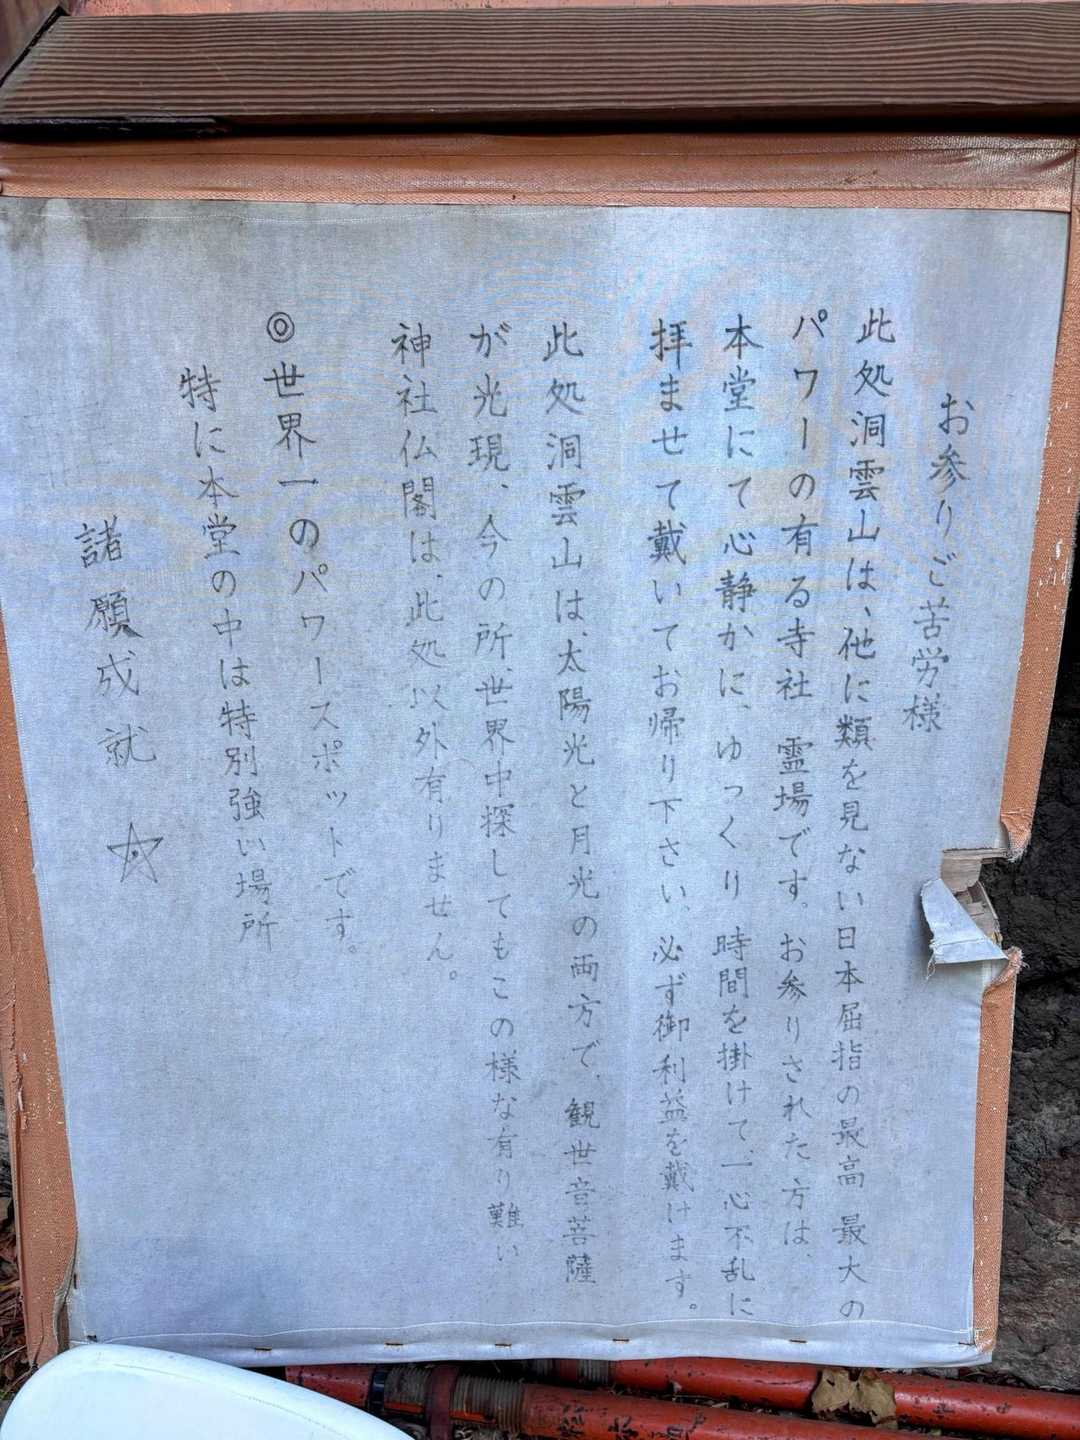 お参りご苦労様
此処洞雲山は、他に類を見ない日本屈指の最高 最大の
パワーの有る寺社 霊場です。お参りされた方は、
本堂にて心静かに、ゆっくり 時間を掛けて、一心不乱に
拝ませて戴いてお帰り下さい、必ず御利益を戴けます。
此処洞雲山は、太陽光と月光の両方で、観世音菩薩
が光現、今の所、世界中探してもこの様な有り難い
神社仏閣は、此処以外有りません。
◎世界一のパワースポットです。
特に本堂の中は特別強い場所
諸願成就 ☆